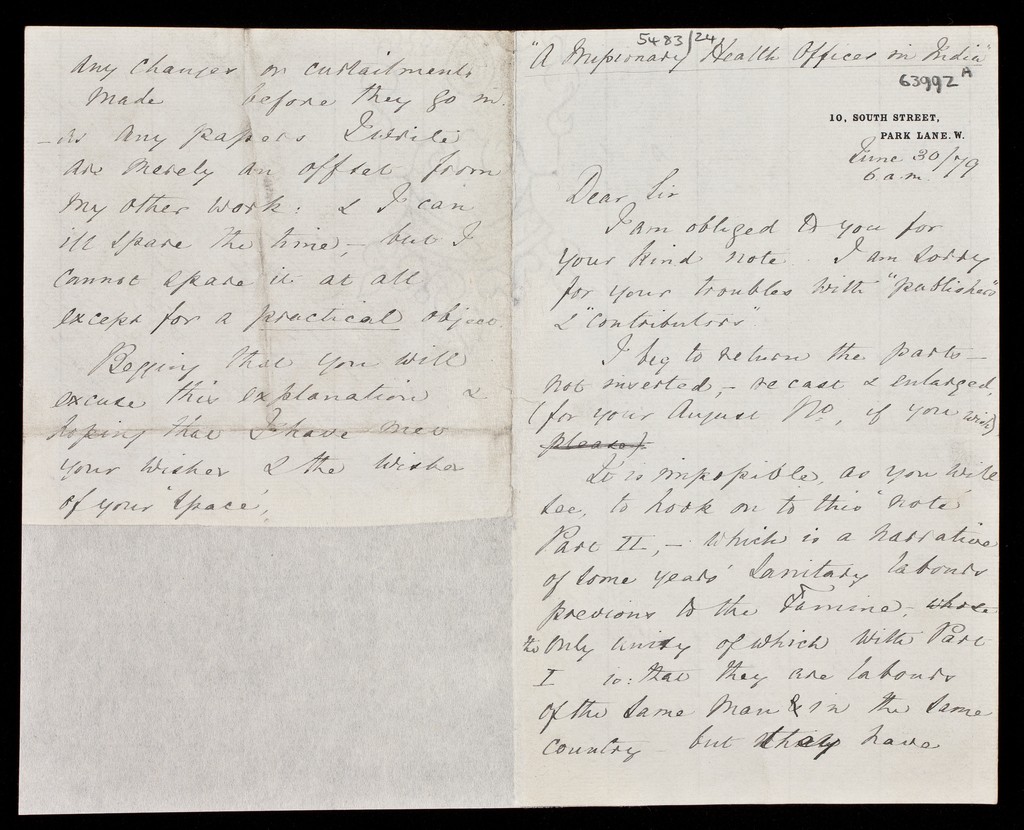 5483/24
"A Missionary Health Officer in India"
63992 A
10, SOUTH STREET,
PARK LANE. W.
June 30/79
6 a.m.
Dear Sir
I am obliged to you for
your kind note. I am sorry
for your troubles with "publishers"
& "contributors"
I beg to return the parts –
not inserted, – re cast & enlarged,
(for your August No, if you wish)
please).
It is impossible, as you will
see, to hook on to this 'note'
Part II, – which is a narrative
of some years' Sanitary labours
previous to the Famine, – whose
the only unity of which with Part
I is: that they are labours
of the same man & in the same
country – but they have
any changes or curtailments
made before they go in.
– as any papers I write
are merely an offset from
my other work: & I can
ill spare the time, – but I
cannot spare it at all
except for a practical object.
Begging that you will
excuse this explanation &
hoping that I have met
your wishes & the wishes
of your 'space',